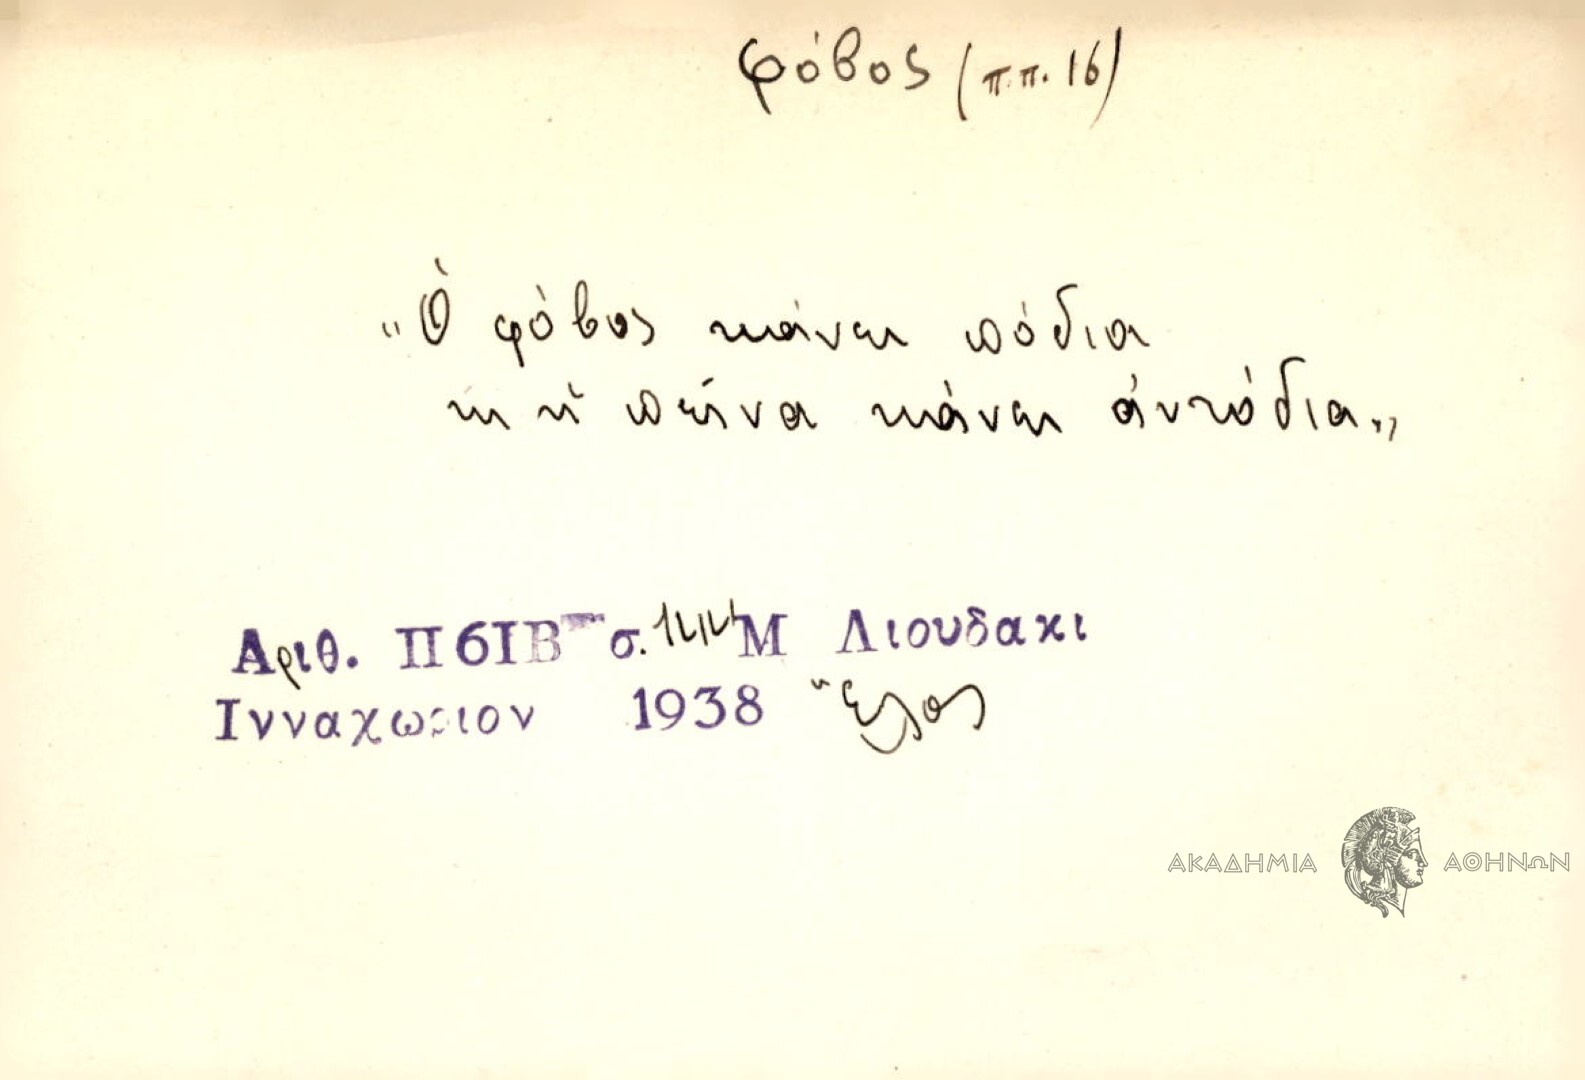 φόβος (π.π. 16)
„Ὁ φόβος κάνει πόδια
κι ἡ πεῖνα κάνει ἀντόδια„
Αριθ. Π61Β σ. Μ Λιουδακι
Ινναχωριον 1938 Ἕλος
ΑΚΑΔΗΜΙΑ ΑΘΗΝΩΝ